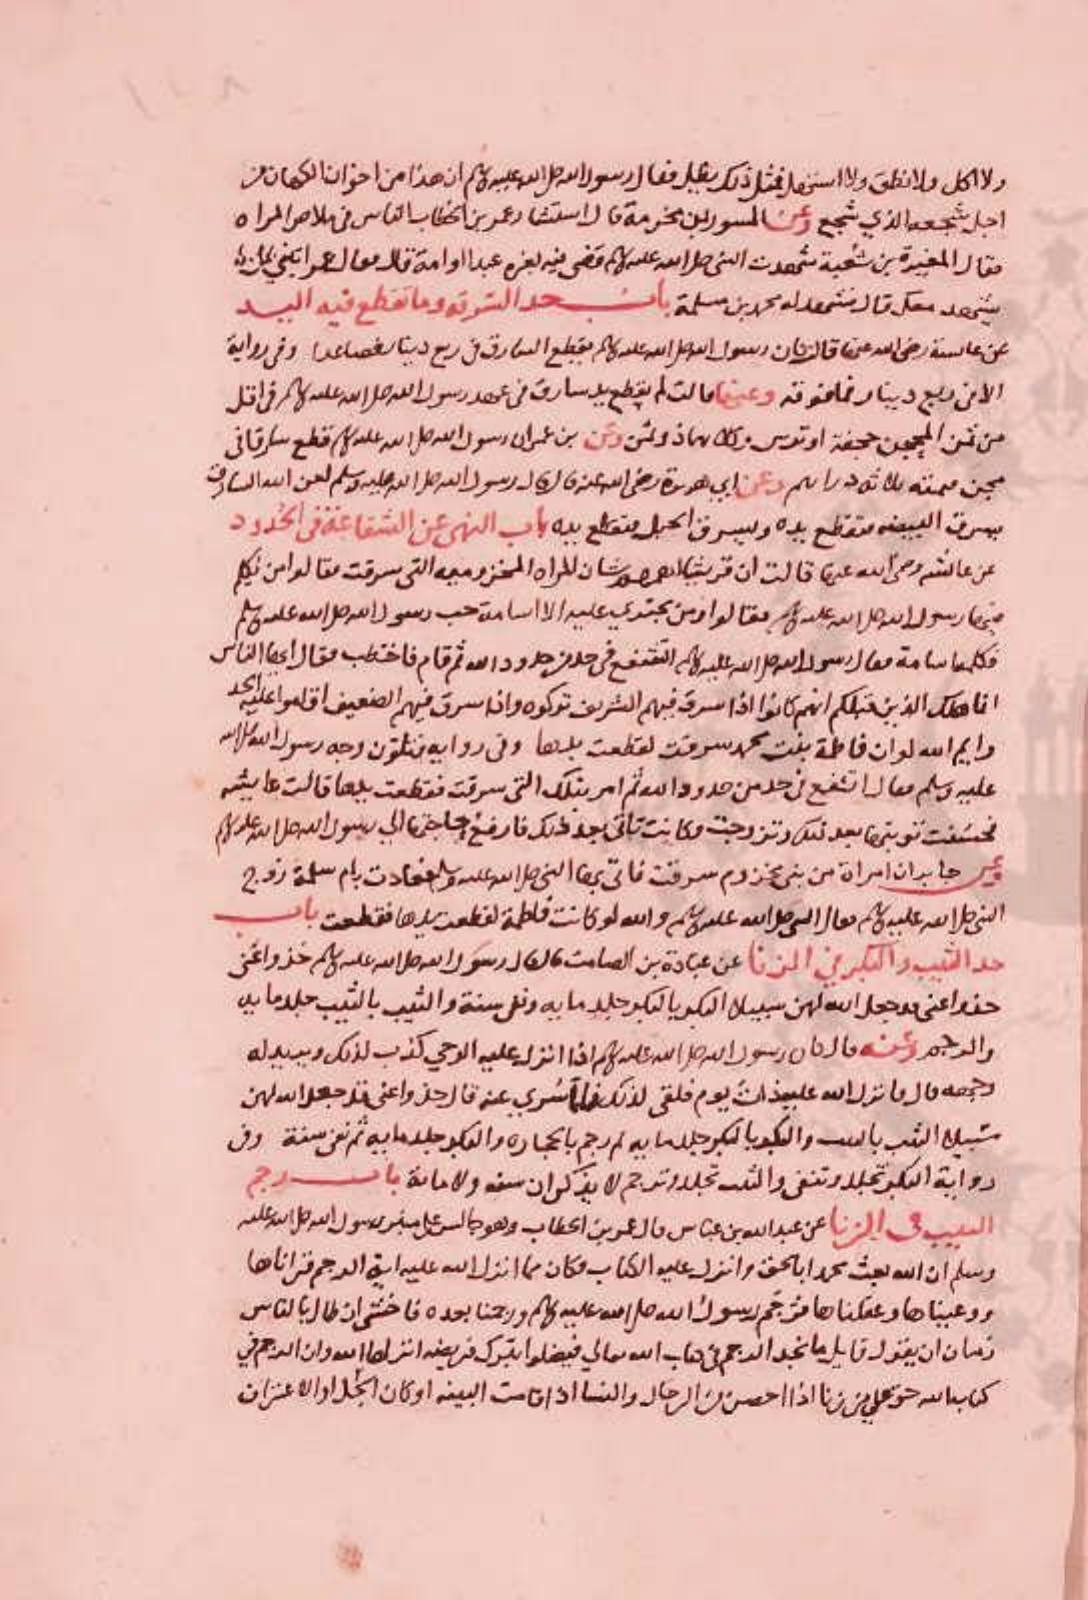 ولا اكل ولا نطق ولا استهل فمثل ذلك يطل فقال رسول الله صلى الله عليه وسلم ان هذا من اخوان الكهان من
اجل سجعه الذي سجع وعن المسور بن مخرمة قال استشار عمر بن الخطاب الناس في ملاص المراه
فقال المغيرة بن شعبة شهدت النبي صلى الله عليه وسلم قضى فيه بغره عبد او امة قال فقال عمر ايتني بمن
يشهد معك قال فشهد له محمد بن مسلمة باب حد السرقه وما تقطع فيه اليد
عن عائشة رضي الله عنها قالت كان رسول الله صلى الله عليه وسلم يقطع السارق في ربع دينار فصاعدا وفي رواية
الا في ربع دينار فما فوقه وعنها قالت لم يقطع يد سارق في عهد رسول الله صلى الله عليه وسلم في اقل
من ثمن المجن حجفة او ترس وكلاهما ذو ثمن وعن بن عمر ان رسول الله صلى الله عليه وسلم قطع سارقا في
مجن قيمته ثلاثه دراهم وعن ابي هريرة رضي الله عنه قال قال رسول الله صلى الله عليه وسلم لعن الله السارق
يسرق البيضه فتقطع يده ويسرق الحبل فتقطع يده باب النهي عن الشفاعة في الحدود
عن عائشه رضي الله عنها قالت ان قريشا اهمهم شان المراه المخزوميه التي سرقت فقالوا من يكلم
فيها رسول الله صلى الله عليه وسلم فقالوا ومن يجتري عليه الا اسامة حب رسول الله صلى الله عليه وسلم
فكلمه اسامة فقال رسول الله صلى الله عليه وسلم اتشفع في حد من حدود الله ثم قام فاختطب فقال ايها الناس
انما هلك الذين قبلكم انهم كانوا اذا سرق فيهم الشريف تركوه واذا سرق فيهم الضعيف اقاموا عليه الحد
وايم الله لو ان فاطمة بنت محمد سرقت لقطعت يدها وفي روايه فتلون وجه رسول الله صلى الله
عليه وسلم فقال اتشفع في حد من حدود الله ثم امر بتلك التي سرقت فقطعت يدها قالت عايشه
فحسنت توبتها بعد ذلك وتزوجت وكانت تاتي بعد ذلك فارفع حاجتها الي رسول الله صلى الله عليه وسلم
وعن جابر ان امراة من بني مخزوم سرقت فاتي بها النبي صلى الله عليه وسلم فعاذت بام سلمة زوج
النبي صلى الله عليه وسلم فقال النبي صلى الله عليه وسلم والله لو كانت فاطمة لقطعت يدها فقطعت باب
حد الثيب والبكر في الزنا عن عبادة بن الصامت قال قال رسول الله صلى الله عليه وسلم خذوا عني
خذوا عني قد جعل الله لهن سبيلا البكر بالبكر جلد مايه ونفي سنة والثيب بالثيب جلد مايه
والرجم وعنه قال كان رسول الله صلى الله عليه وسلم اذا انزل عليه الوحي كرب لذلك وتربد له
وجهه قال فانزل الله عليه ذات يوم فلقي لذلك فلما سري عنه قال خذوا عني قد جعل الله لهن
سبيلا الثيب بالثيب والبكر بالبكر جلد مايه ثم رجم بالحجاره والبكر جلد مايه ثم نفي سنة وفي
رواية البكر تجلد وتنفى والثيب تجلد وترجم لا يذكران سنه ولا ماية باب رجم
الثيب في الزنا عن عبد الله بن عباس قال عمر بن الخطاب وهو جالس على منبر رسول الله صلى الله عليه
وسلم ان الله بعث محمدا بالحق وانزل عليه الكتاب فكان مما انزل الله عليه اية الرجم قراناها
ووعيناها وعقلناها فرجم رسول الله صلى الله عليه وسلم ورجمنا بعده فاخشى ان طال بالناس
زمان ان يقول قايل ما نجد الرجم في كتاب الله تعالي فيضلوا بترك فريضه انزلها الله وان الرجم في
كتاب الله حق علي من زنا اذا احصن من الرجال والنسا اذا قامت البينه او كان الحبل او الاعتراف